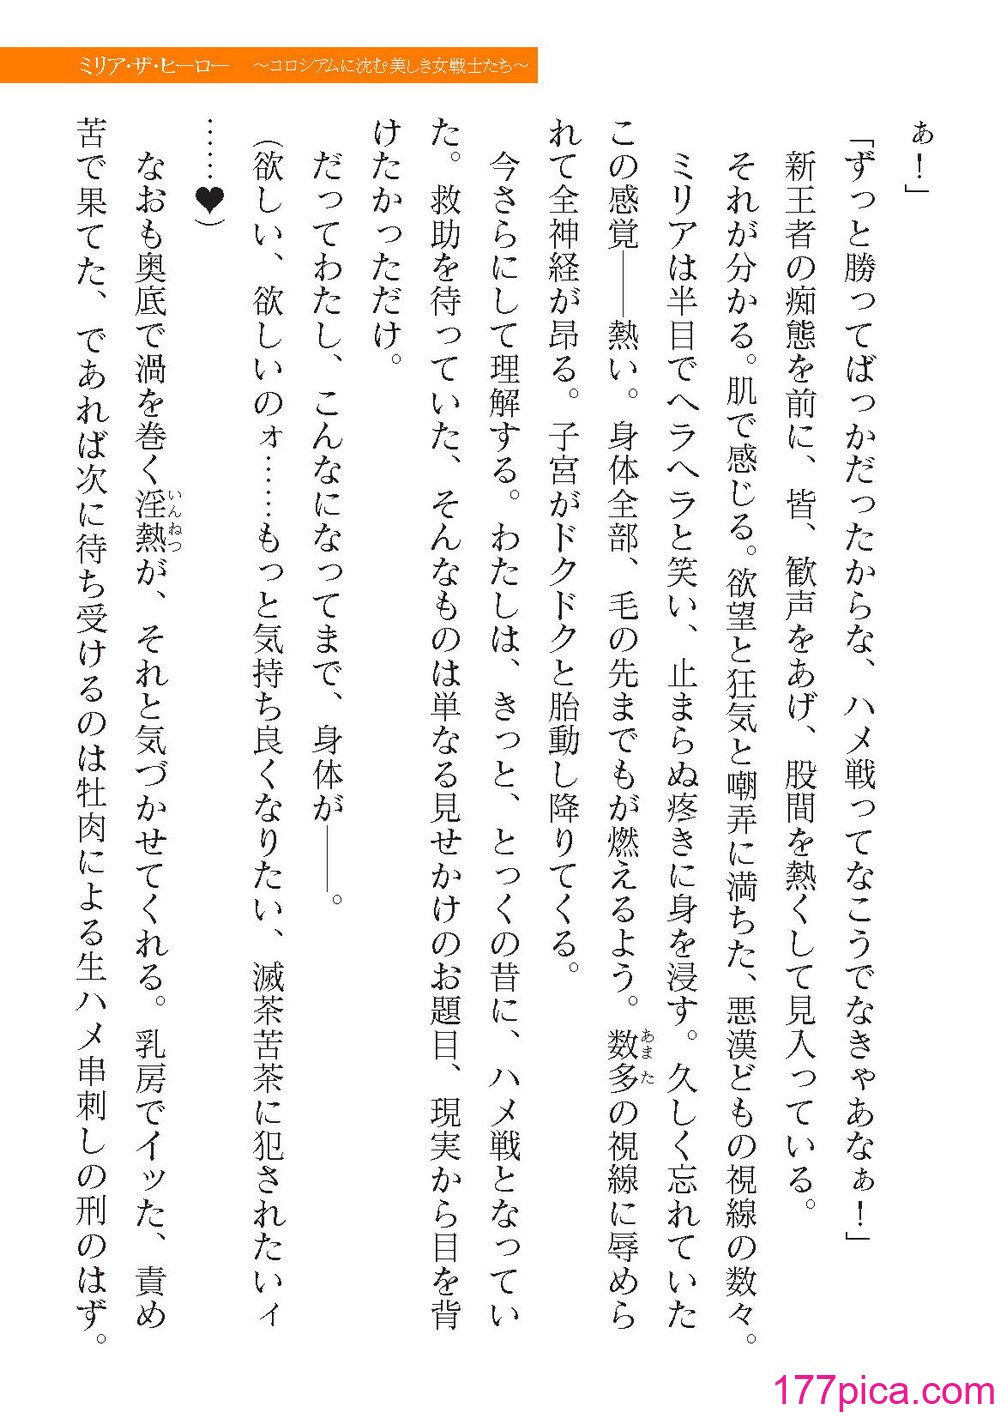 ミリア・ザ・ヒーロー　～コロシアムに沈む美しき女戦士たち～
ぁ！」
「ずっと勝ってばっかだったからな、ハメ戦ってなこうでなきゃあなぁ！」
新王者の痴態を前に、皆、歓声をあげ、股間を熱くして見入っている。
それが分かる。肌で感じる。欲望と狂気と嘲弄に満ちた、悪漢どもの視線の数々。
ミリアは半目でヘラヘラと笑い、止まらぬ疼きに身を浸す。久しく忘れていた
この感覚――熱い。身体全部、毛の先までもが燃えるよう。数多の視線に辱めら
あまた
れて全神経が昂る。子宮がドクドクと胎動し降りてくる。
今さらにして理解する。わたしは、きっと、とっくの昔に、ハメ戦となってい
た。救助を待っていた、そんなものは単なる見せかけのお題目、現実から目を背
けたかっただけ。
だってわたし、こんなになってまで、身体が――。
（欲しい、欲しいのォ……もっと気持ち良くなりたい、滅茶苦茶に犯されたいィ
……♥）
なおも奥底で渦を巻く淫熱が、それと気づかせてくれる。乳房でイッた、責め
いんねつ
苦で果てた、であれば次に待ち受けるのは牡肉による生ハメ串刺しの刑のはず。
177pica.com